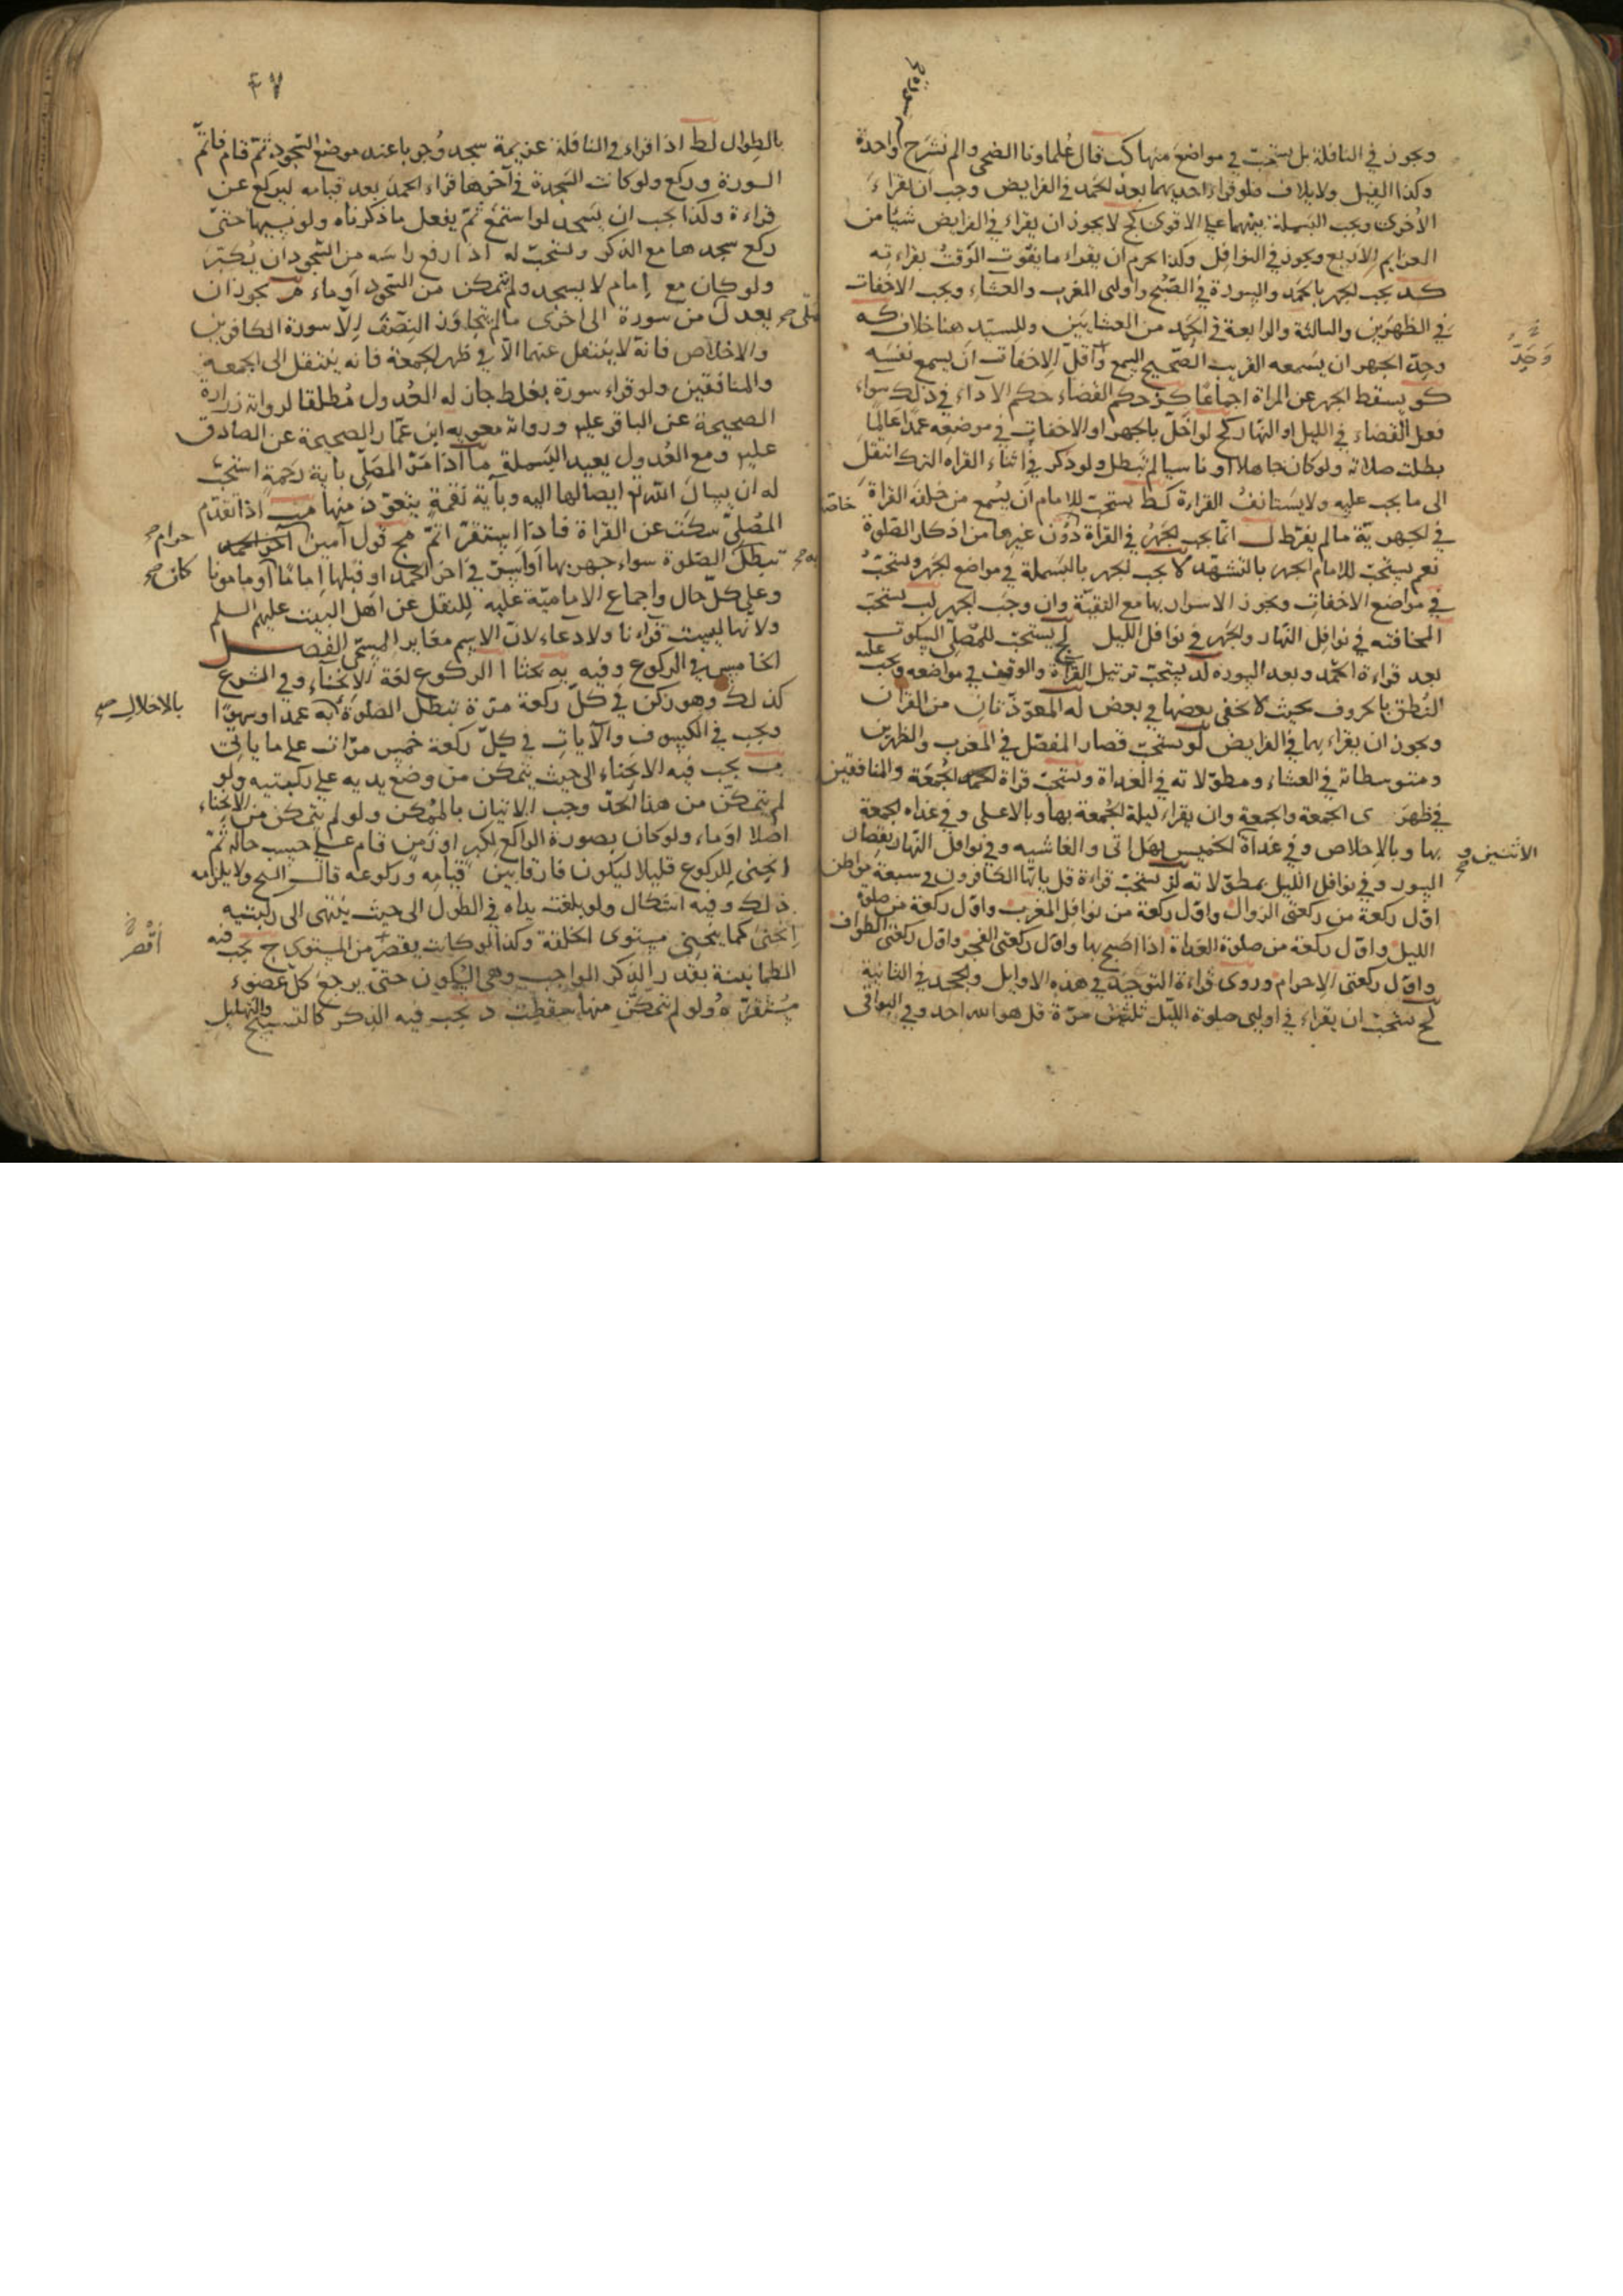 ويجوز في النافلة بل يستحب في مواضع منها كب قال علماونا الضحى والم نشرح سورة واحدة
وكذا الفيل ولايلاف فلو قراء احديهما بعد الحمد في الفرايض وجب ان يقراء
الاخرى ويجب البسملة بينهما على الاقوى كج لا يجوز ان يقراء في الفرايض شيئا من
العزايم الاربع ويجوز في النوافل وكذا يحرم ان يقراء ما يفوت الوقت بقراءته
كد يجب الجهر بالحمد والسورة في الصبح واولتى المغرب والعشاء ويجب الاخفات
في الظهرين والثالثة والرابعة في الحمد من العشايين وللسيد هنا خلاف كه
وحد الجهر ان يسمعه القريب الصحيح السمع واقل الاخفات ان يسمع نفسه
كو يسقط الجهر عن المراة اجماعا كز حكم القضاء حكم الاداء في ذلك سواء
فعل القضاء في الليل او النهار كح لو اخل بالجهر او الاخفات في موضعه عمدا عالما
بطلت صلاته ولو كان جاهلا او ناسيا لم تبطل ولو ذكر في اثناء القراه الترك انتقل
الى ما يجب عليه ولا يستانف القراءة كط يستحب للامام ان يسمع من خلفه القراة خاصة
في الجهرية ما لم يفرط ل انما يجب الجهر في القراة دون غيرها من اذكار الصلوة
نعم يستحب للامام الجهر بالتشهد لا يجب الجهر بالبسملة في مواضع الجهر ويستحب
في مواضع الاخفات ويجوز الاسرار بها مع التقية وان وجب الجهر لب يستحب
المخافته في نوافل النهار والجهر في نوافل الليل لج يستحب للمصلى السكوت
بعد قراءة الحمد وبعد السوره لد يستحب ترتيل القراة والوقف في مواضعه ويجب عليه
النطق بالحروف بحيث لا يخفى بعضها في بعض له المعوذتان من القران
ويجوز ان يقراء بهما في الفرايض لو يستحب قصار المفصل في المغرب والظهرين
ومتوسطاته في العشاء ومطولاته في الغداة ويستحب قراة الجمعة والمنافقين
في ظهرى الجمعة والجمعة وان يقراء ليلة الجمعة بها وبالاعلى وفي غداه الجمعة
بها وبالاخلاص وفي غداة الاثنين و الخميس بهل اتى والغاشيه وفي نوافل النهار بقصار
السور وفي نوافل الليل بمطولاته لز يستحب قراءة قل يا ايها الكافرون في سبعة مواطن
اول ركعة من ركعتى الزوال واول ركعة من نوافل المغرب واول ركعة من صلوة
الليل واول ركعة من صلوة الغداة اذا اصبح بها واول ركعتى الفجر واول ركعتى الطواف
واول ركعتى الاحرام وروى قراءة التوحيد في هذه الاوايل والجحد في الثانية
لح يستحب ان يقراء في اوليى صلوة الليل ثلثين مرة قل هو الله احد وفي البواقى
وحد
٤٧
بالطوال لط اذا قراء في النافلة عزيمة سجد وجوبا عند موضع السجود ثم قام فاتم
السورة وركع ولو كانت السجدة في آخرها قراء الحمد بعد قيامه ليركع عن
قراءة وكذا يجب ان يسجد لو استمع ثم يفعل ما ذكرناه ولو نسيها حتى
ركع سجدها مع الذكر ويستحب له اذا رفع راسه من السجود ان يكبر
ولو كان مع امام لا يسجد ولم يتمكن من السجود اوماء م يجوز ان
يعدل من سورة الى اخرى ما لم يتجاوز النصف الا سورة الكافرين
والاخلاص فانه لا ينتقل عنهما الا في ظهر الجمعة فانه ينتقل الى الجمعة
والمنافقين ولو قراء سورة بغلط جاز له العدول مطلقا لرواية زرارة
الصحيحة عن الباقر عليه ورواية معويه ابن عمار الصحيحة عن الصادق
عليه ومع العدول يعيد البسملة ما اذا مر المصلى بآية رحمة استحب
له ان يسال الله تع ايصالها اليه وبآية نقمة يتعوذ منها مب اذا تقدم
المصلى سكت عن القراة فاذا استقر اتم مج قول آمين آخر الحمد حرام
تبطل الصلوة سواء جهر بها او اسر في اخر الحمد او قبلها اماما كان او ماموما
وعلى كل حال واجماع الامامية عليه للنقل عن اهل البيت عليهم السلم
ولانها ليست قرانا ولا دعاء لان الاسم مغاير المسمى الفصل
الخامس في الركوع وفيه يه بحثا ا الركوع لغة الانحناء وفي الشرع
كذلك وهو ركن في كل ركعة مرة تبطل الصلوة به عمدا وسهوا
بالاخلال
ويجب في الكسوف والآيات في كل ركعة خمس مرات على ما ياتى
ب يجب فيه الانحناء الى حيث يتمكن من وضع يديه على ركبتيه ولو
لم يتمكن من هذا الحد وجب الاتيان بالممكن ولو لم يتمكن من الانحناء
اصلا اوماء ولو كان بصورة الراكع لكبر او زمن قام على حسب حاله ثم
انحنى للركوع قليلا ليكون فارقا بين قيامه وركوعه قال الشيخ ولا يلزمه
ذلك وفيه اشكال ولو بلغت يداه في الطول الى حيث ينتهى الى ركبتيه
انحنى كما ينحنى مستوى الخلقة وكذا لو كانت يقصر من المستوى ج يجب فيه
اقصر
الطمانينة بقدر الذكر الواجب وهى السكون حتى يرجع كل عضوء
مستقره ولو لم يتمكن منها سقطت د يجب فيه الذكر كالتسبيح والتهليل